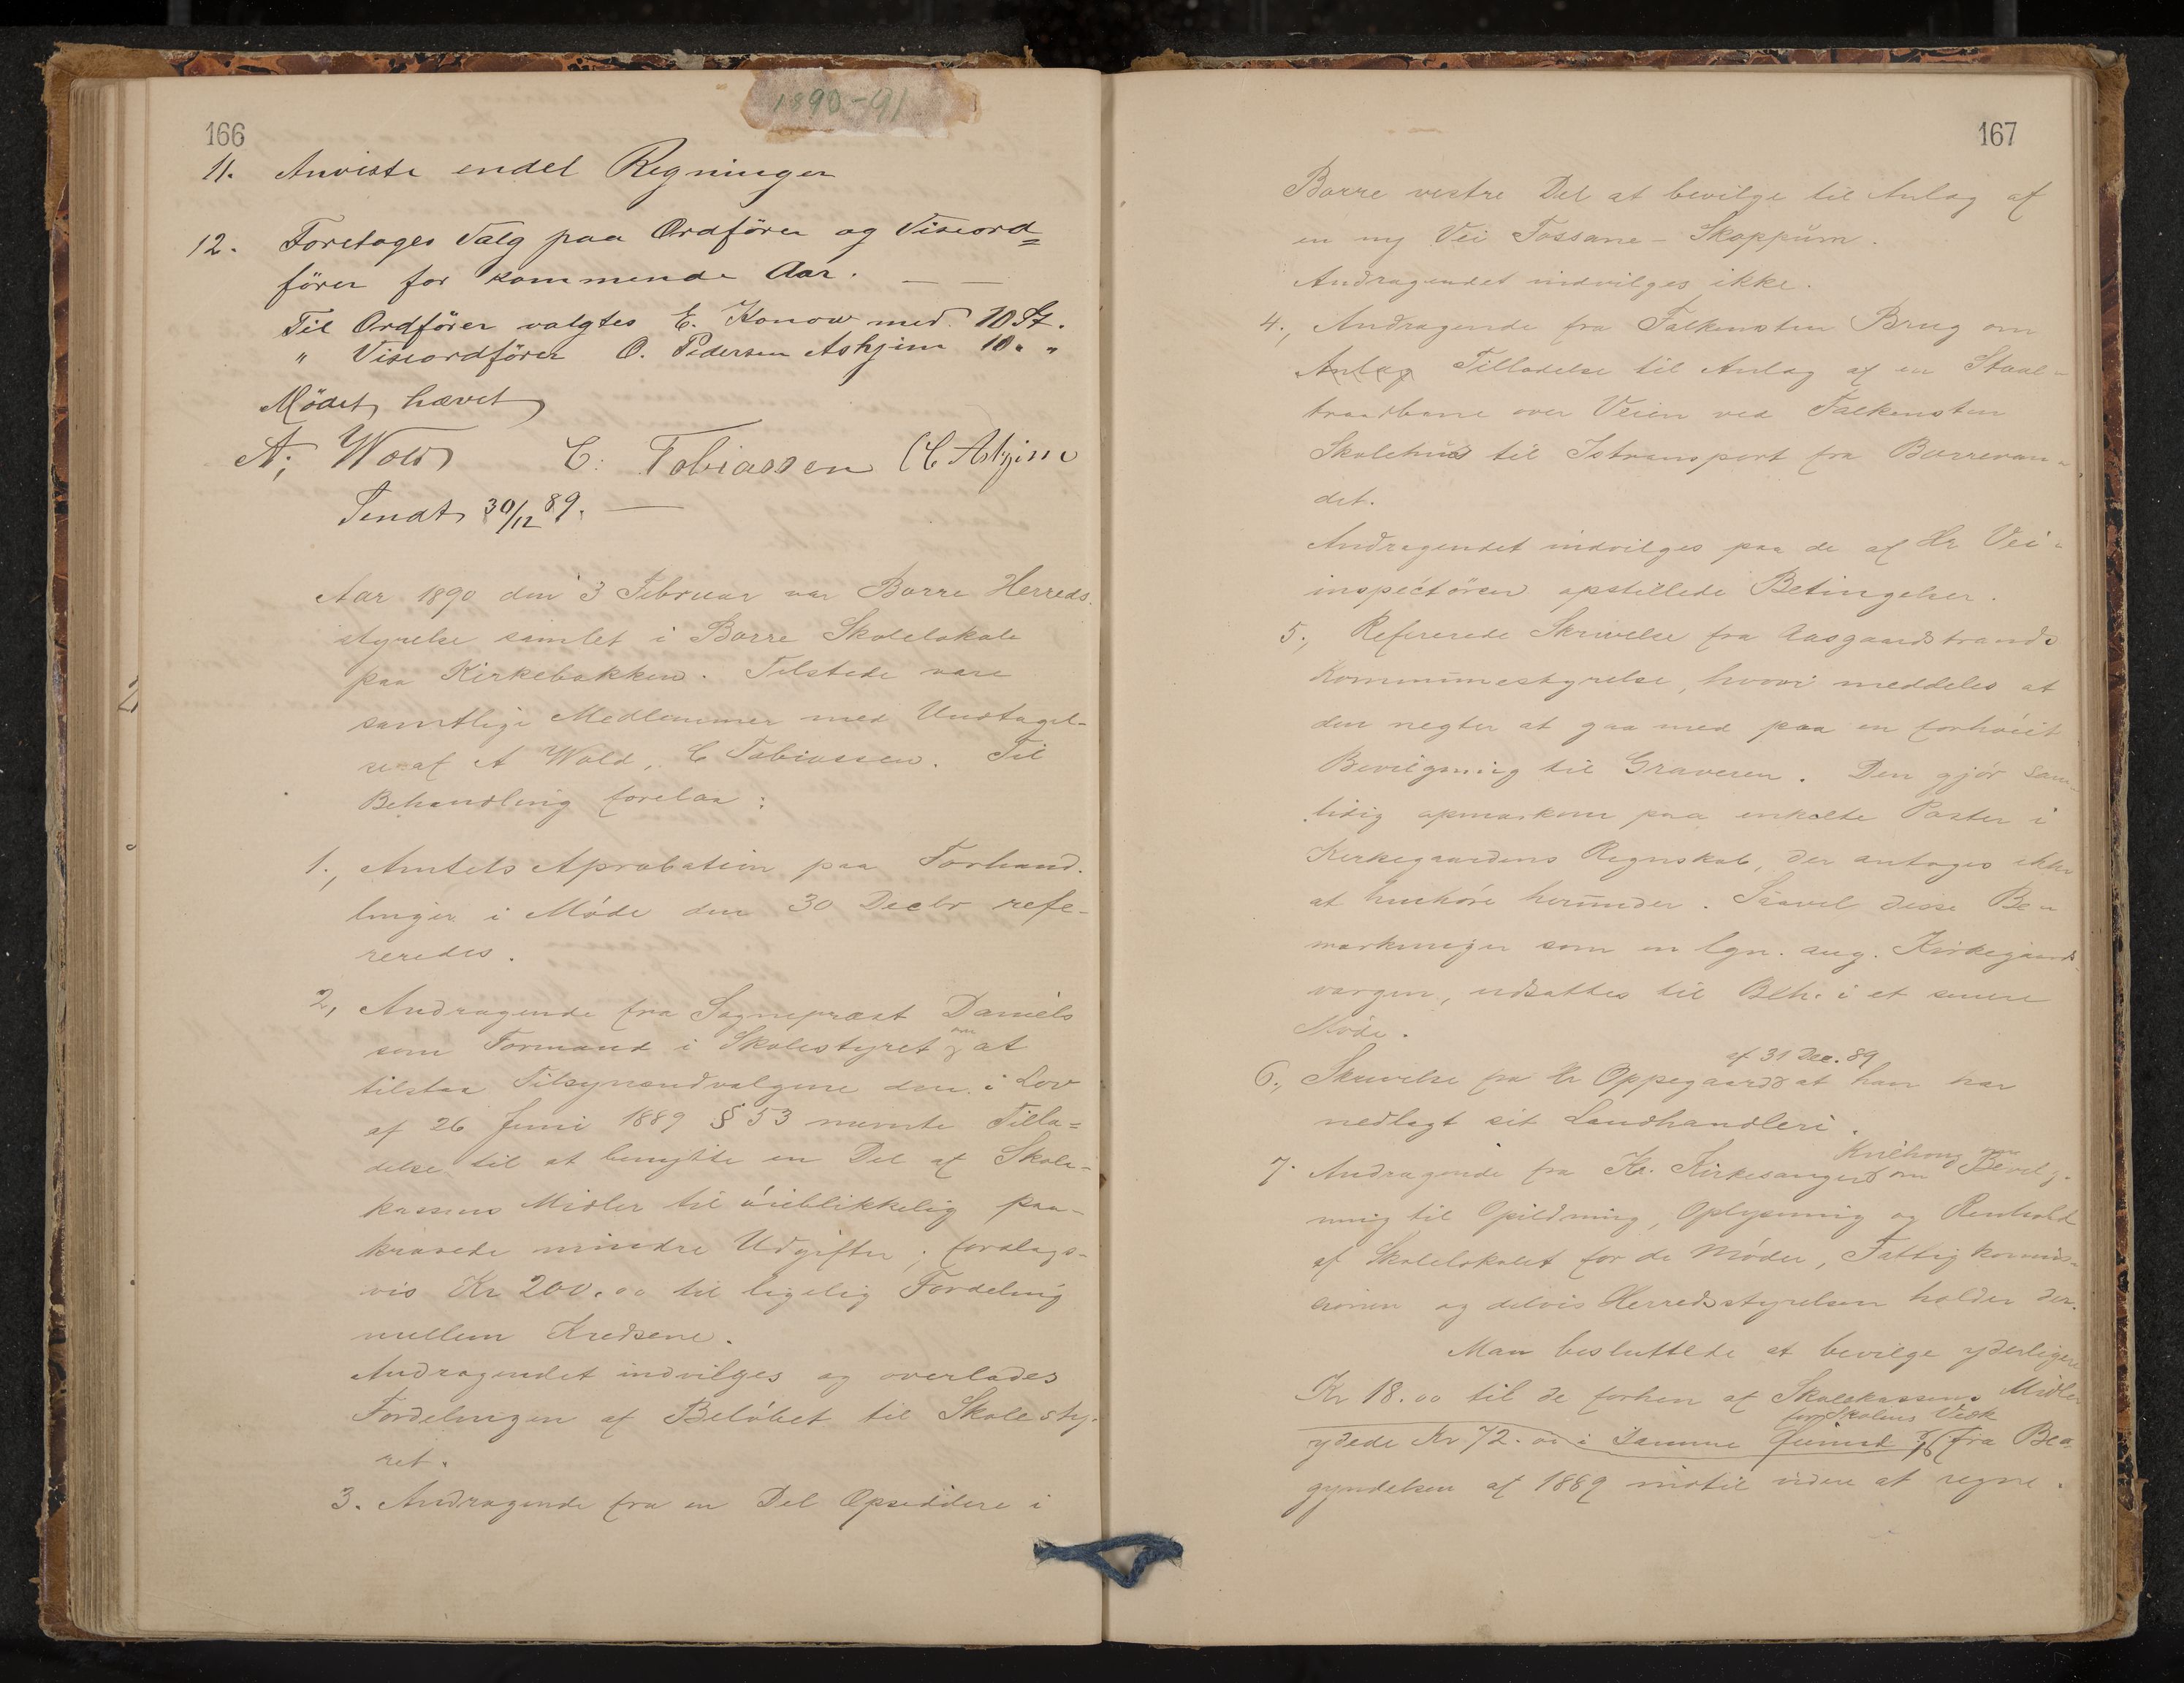 1890-91
166
11. Anviste endel Regninger
12. Foretoges Valg paa Ordförer og Viseord=
förer for kommende Aar.
Til Ordförer valgtes E. Konow med 10 St.
" Viseordförer O. Pedersen Askjim 10 " "
Mödet hævet
A. Wold C. Tobiassen C Askjim
Sendt 30/12 89.
Aar 1890 den 3 Februar var Borre Herreds-
styrelse samlet i Borre Skolelokale
paa Kirkebakken. Tilstede vare
samtlige Medlemmer med Undtagel-
se af A Wold, C Tobiassen. Til
Behandling forelaa:
1., Amtets Aprobation paa Forhand-
linger i Möde den 30 Decbr refe-
reredes.
2, Andragende fra Sognepræst Daniels
som Formand i Skolestyret om at
tilstaa Tilsynsudvalgene den i Lov
af 26 Juni 1889 § 53 nævnte Tilla=
delse til at benytte en Del af Skole-
kassens Midler til öieblikkelig paa-
krævede mindre Udgifter, forslags-
vis Kr 200.00 til ligelig Fordeling
mellem Kredsene.
Andragendet indvilges og overlades
Fordelingen af Belöbet til Skolesty-
ret.
3. Andragende fra en Del Opsiddere i
167
Borre vestre Del at bevilge til Anlæg af
en ny Vei Fossane - Skoppum.
Andragendet indvilges ikke.
4., Andragende fra Falkensten Brug om
Anlæg Tilladelse til Anlæg af en Staal-
traadbane over Veien ved Falkensten
Skolehus til Istransport fra Borrevan-
det.
Andragendet indvilges paa de af Hr Vei-
inspectören opstillede Betingelser.
5., Refererede Skrivelse fra Aasgaardstrands
Kommunestyrelse, hvori meddeles at
den negter at gaa med paa en forhöiet
Bevilgning til Graveren. Den gjör sam-
tidig opmærksom paa enkelte Poster i
Kirkegaardens Regnskab, der antages ikke
at henhöre herunder. Saavel disse Be-
mærkninger som en lgn. ang. Kirkegaards-
vargen, udsattes til Beh. i et senere
Möde.
6., Skrivelse fra Hr Oppegaard af 31 Dec. 89 at han har
nedlagt sit Landhandleri.
7. Andragende fra Hr. Kirkesanger Kvilhoug om Bevilg-
ning til Opildning, Oplysning og Renhold
af Skolelokalet for de Möder, Fattigkommis-
sionen og delvis Herredsstyrelsen holder der.
Man besluttede at bevilge yderligere
Kr 18.00 til de forhen af Skolekassens Midler
for Skolens Vedk
ydede Kr 72.00 i samme fra Be-
gyndelsen af 1889 indtil videre at regne.